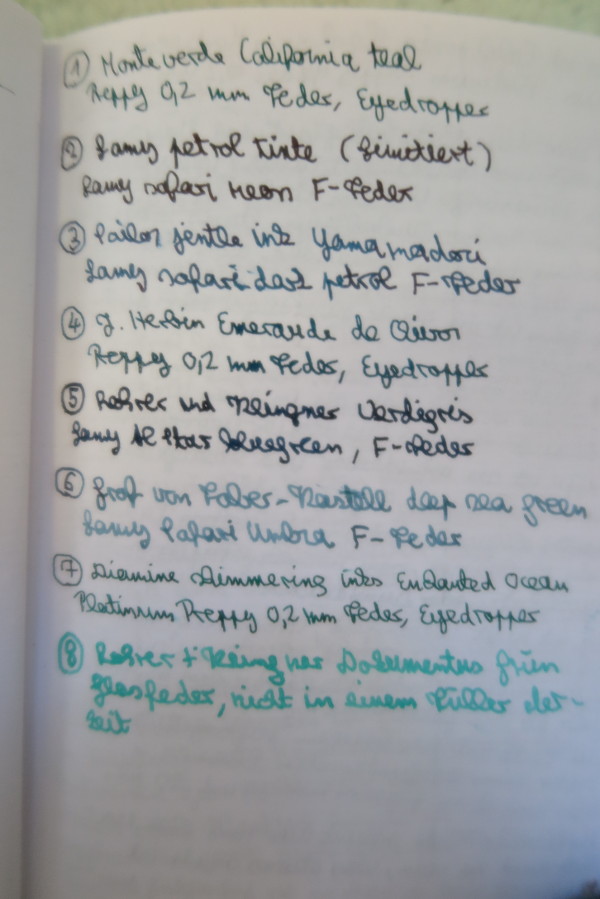 ① Monteverde California teal
Preppy 0,2 mm Feder, Eyedropper
② Lamy petrol Tinte (limitiert)
Lamy safari neon F-Feder
③ Sailor jentle ink Yamamadori
Lamy safari dark petrol F-Feder
④ J. Herbin Emeraude de Chivor
Preppy 0,2 mm Feder, Eyedropper
⑤ Rohrer und Klingner Verdigris
Lamy Al Star bluegreen, F-Feder
⑥ Graf von Faber-Kastell deep sea green
Lamy Safari Umbra F-Feder
⑦ Diamine Shimmering inks Enchanted Ocean
Platinum Preppy 0,2 mm Feder, Eyedropper
⑧ Rohrer + Klingner Dokumentus grün
Glasfeder, nicht in einem Füller der-
zeit